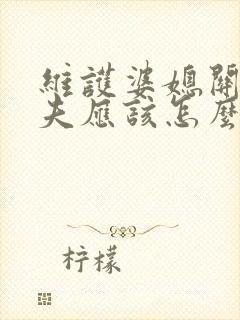 維護婆媳關
夫應該怎麼
柠檬